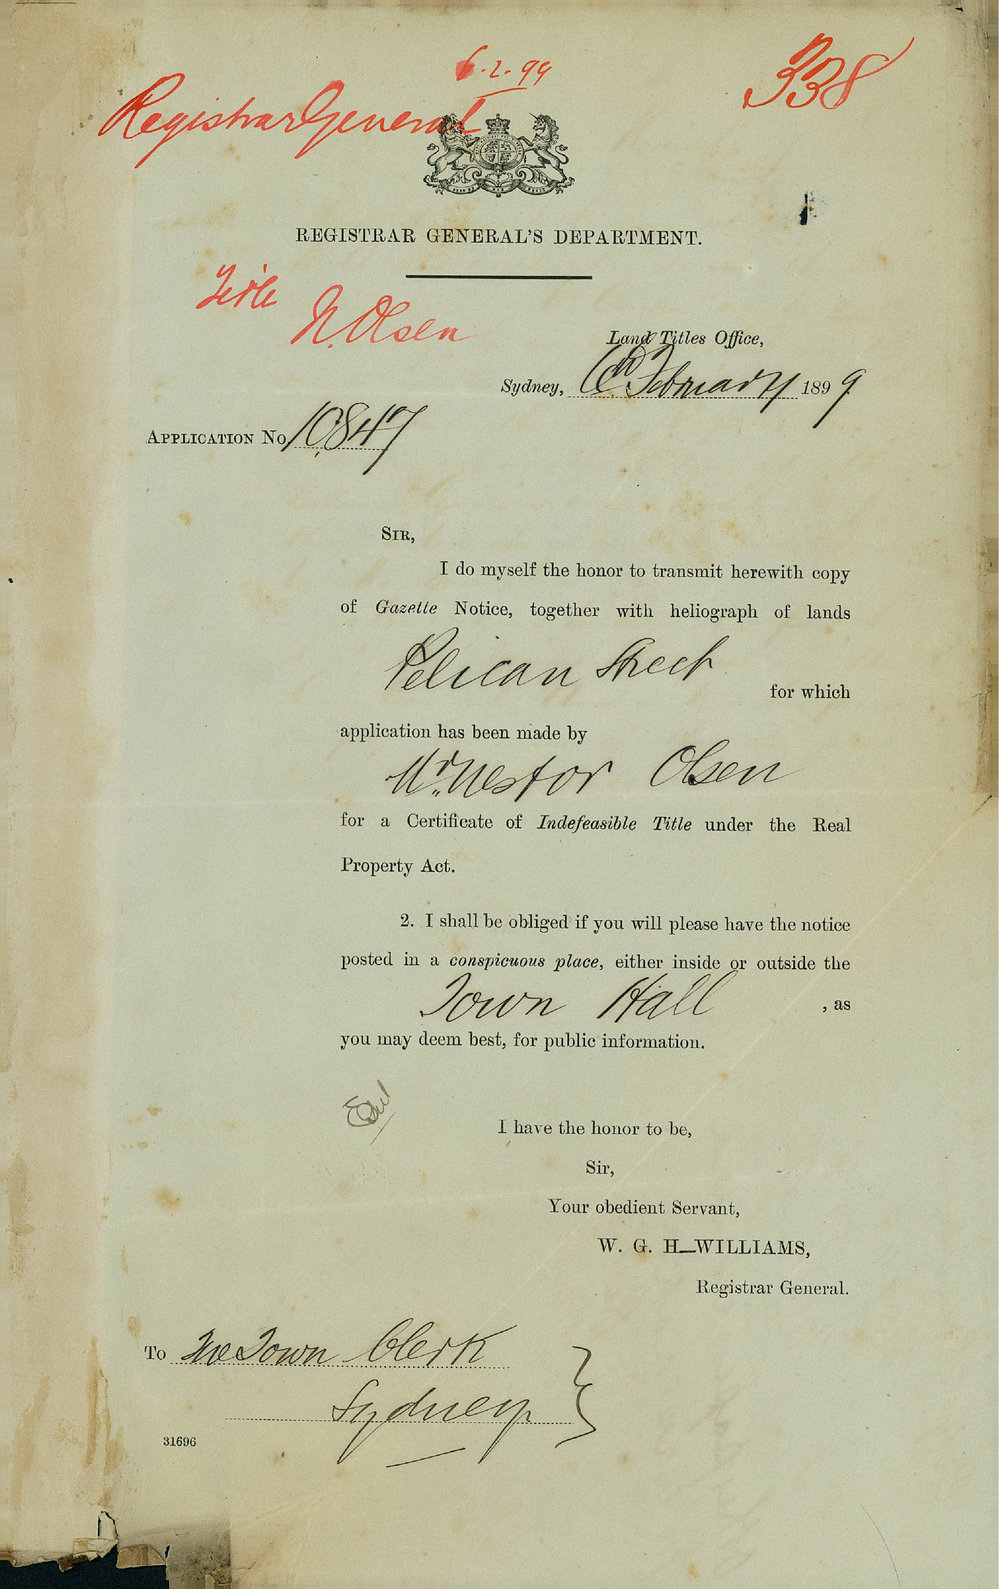 6.2.99
338
Registrar General
REGISTRAR GENERAL'S DEPARTMENT.
Title
N. Olsen
Land Titles Office,
Sydney, 6th February 1899
APPLICATION No 10847
SIR,
I do myself the honor to transmit herewith copy
of Gazette Notice, together with heliograph of lands
Pelican Street
for which
application has been made by
Mr. Nestor Olsen
for a Certificate of Indefeasible Title under the Real
Property Act.
2. I shall be obliged if you will please have the notice
posted in a conspicuous place, either inside or outside the
Town Hall , as
you may deem best, for public information.
I have the honor to be,
Sir,
Your obedient Servant,
W. G. H—WILLIAMS,
Registrar General.
To The Town Clerk
Sydney
31696